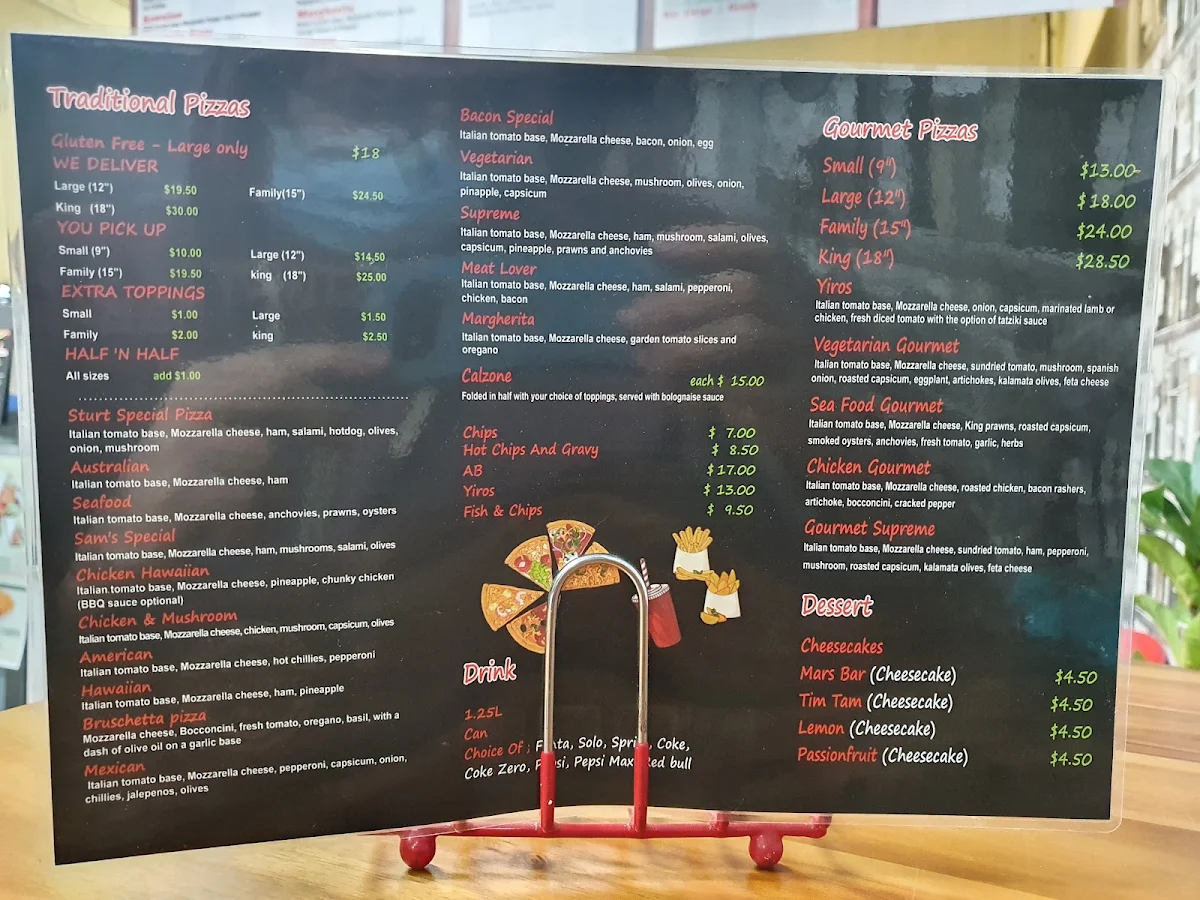 Traditional Pizzas
Gluten Free - Large only $18
WE DELIVER
Large (12") $19.50 Family(15") $24.50
King (18") $30.00
YOU PICK UP
Small (9") $10.00 Large (12") $14.50
Family (15") $19.50 king (18") $25.00
EXTRA TOPPINGS
Small $1.00 Large $1.50
Family $2.00 king $2.50
HALF 'N HALF
All sizes add $1.00
Sturt Special Pizza
Italian tomato base, Mozzarella cheese, ham, salami, hotdog, olives,
onion, mushroom
Australian
Italian tomato base, Mozzarella cheese, ham
Seafood
Italian tomato base, Mozzarella cheese, anchovies, prawns, oysters
Sam's Special
Italian tomato base, Mozzarella cheese, ham, mushrooms, salami, olives
Chicken Hawaiian
Italian.tomato base, Mozzarella cheese, pineapple, chunky chicken
(BBQ sauce optional)
Chicken & Mushroom
Italian tomato base, Mozzarella cheese, chicken, mushroom, capsicum, olives
American
Italian tomato base, Mozzarella cheese, hot chillies, pepperoni
Hawaiian
Italian tomato base, Mozzarella cheese, ham, pineapple
Bruschetta pizza
Mozzarella cheese, Bocconcini, fresh tomato, oregano, basil, with a
dash of olive oil on a garlic base
Mexican
Italian tomato base, Mozzarella cheese, pepperoni, capsicum, onion,
chillies, jalepenos, olives
Bacon Special
Italian tomato base, Mozzarella cheese, bacon, onion, egg
Vegetarian
Italian tomato base, Mozzarella cheese, mushroom, olives, onion,
pinapple, capsicum
Supreme
Italian tomato base, Mozzarella cheese, ham, mushroom, salami, olives,
capsicum, pineapple, prawns and anchovies
Meat Lover
Italian tomato base, Mozzarella cheese, ham, salami, pepperoni,
chicken, bacon
Margherita
Italian tomato base, Mozzarella cheese, garden tomato slices and
oregano
Calzone each $ 15.00
Folded in half with your choice of toppings, served with bolognaise sauce
Chips $ 7.00
Hot Chips And Gravy $ 8.50
AB $17.00
Yiros $ 13.00
Fish & Chips $ 9.50
Drink
1.25L
Can
Choice Of : Solo, Coke,
Coke Zero, Pepsi Max
bull
Gourmet Pizzas
Small (9") $13.00-
Large (12") $ 18.00
Family (15") $24.00
King (18") $28.50
Yiros
Italian tomato base, Mozzarella cheese, onion, capsicum, marinated lamb or
chicken, fresh diced tomato with the option of tatziki sauce
Vegetarian Gourmet
Italian tomato base, Mozzarella cheese, sundried tomato, mushroom, spanish
onion, roasted capsicum, eggplant, artichokes, kalamata olives, feta cheese
Sea Food Gourmet
Italian tomato base, Mozzarella cheese, King prawns, roasted capsicum,
smoked oysters, anchovies, fresh tomato, garlic, herbs
Chicken Gourmet
Italian tomato base, Mozzarella cheese, roasted chicken, bacon rashers,
artichoke, bocconcini, cracked pepper
Gourmet Supreme
Italian tomato base, Mozzarella cheese, sundried tomato, ham, pepperoni,
mushroom, roasted capsicum, kalamata olives, feta cheese
Dessert
Cheesecakes
Mars Bar (Cheesecake) $4.50
Tim Tam (Cheesecake) $4.50
Lemon (Cheesecake) $4.50
Passionfruit (Cheesecake) $4.50